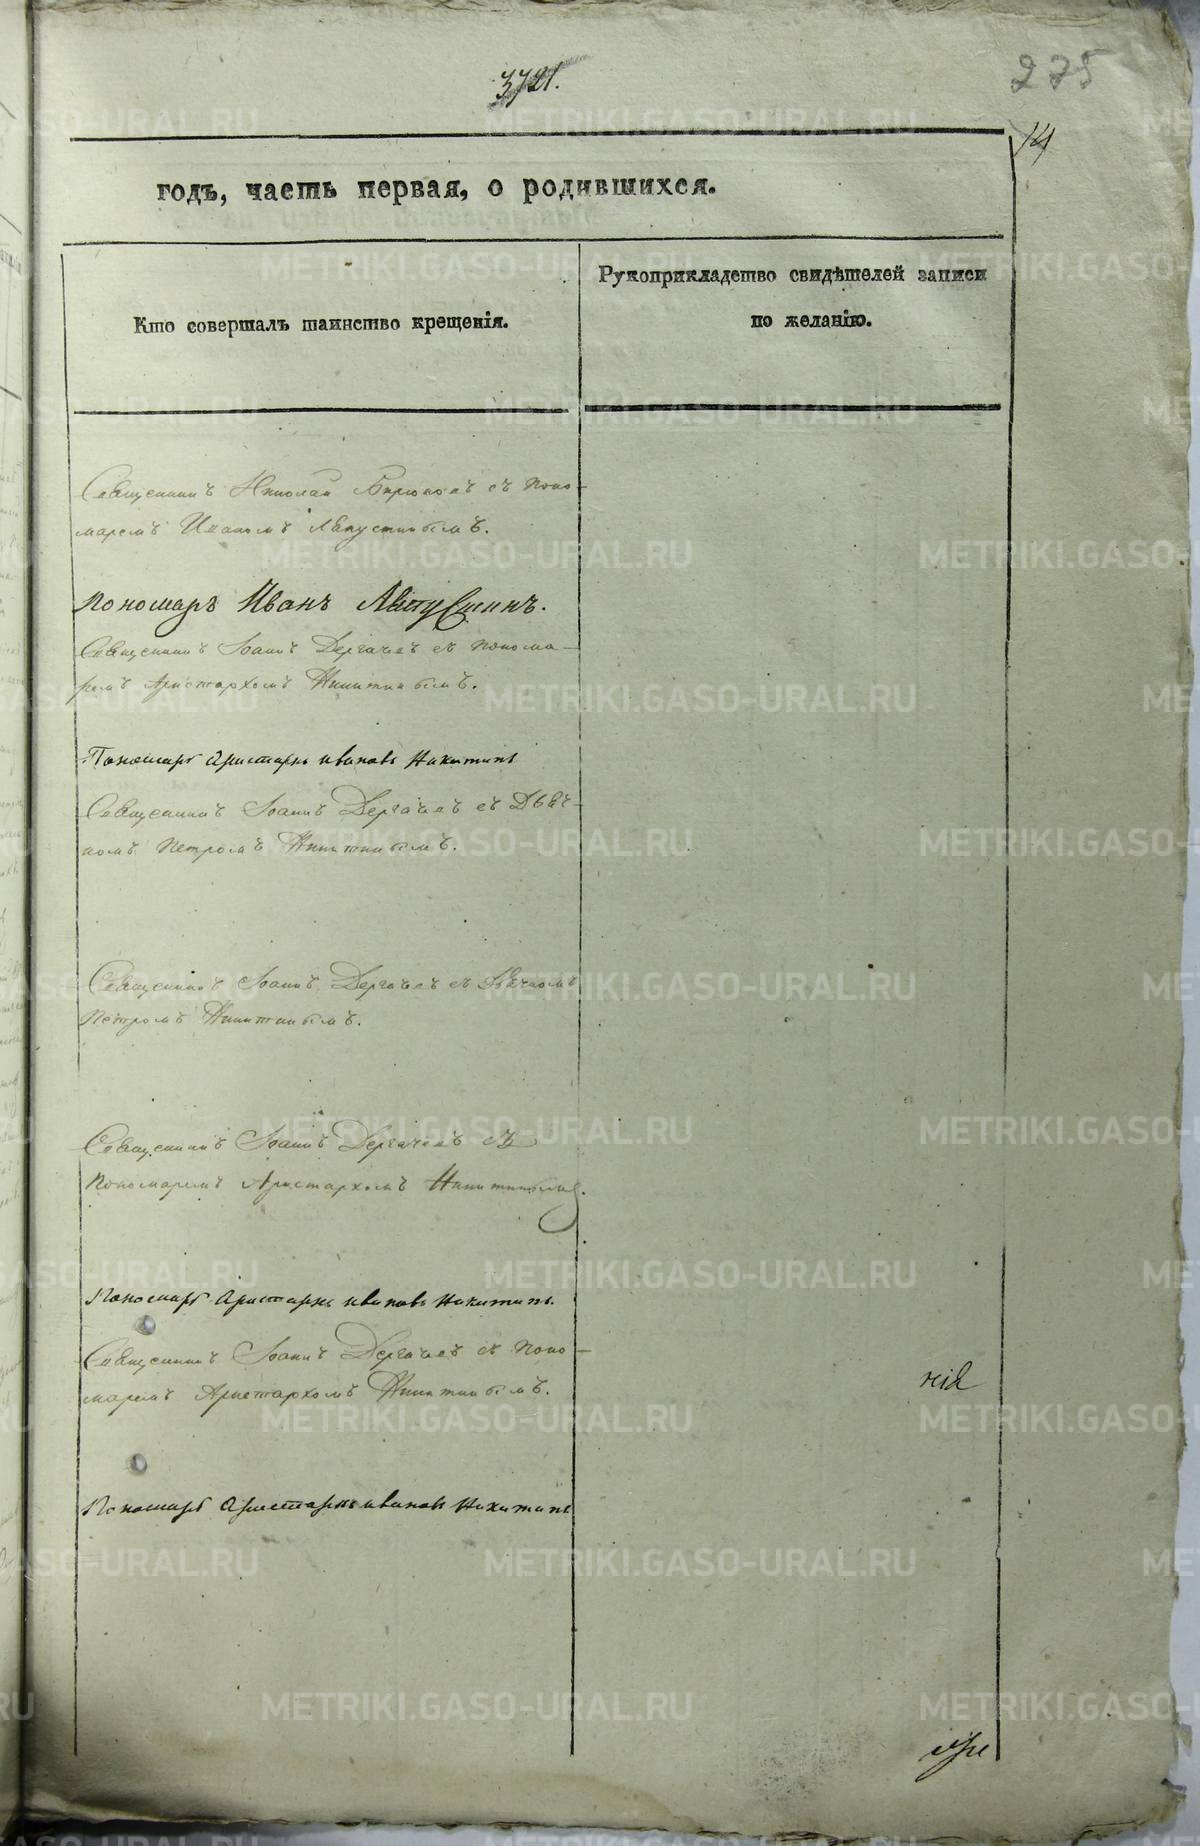 275
14
годъ, часть первая, о родившихся.
Кто совершалъ таинство крещенія.
Рукоприкладство свидѣтелей записи
по желанію.
Священникъ Николай Бирюковъ съ поно-
маремъ Иваномъ Августиновымъ.
Пономарь Иванъ Августинъ.
Священникъ Іоаннъ Дергачевъ съ понома-
ремъ Аристархомъ Никитинымъ.
Пономарь Аристархъ Ивановъ Никитинъ
Священникъ Іоаннъ Дергачевъ съ Дьяч-
комъ Петромъ Никитинымъ.
Священникъ Іоаннъ Дергачевъ съ Дьячкомъ
Петромъ Никитинымъ.
Священникъ Іоаннъ Дергачевъ съ
Пономаремъ Аристархомъ Никитинымъ.
Пономарь Аристархъ Ивановъ Никитинъ.
Священникъ Іоаннъ Дергачевъ съ поно-
маремъ Аристархомъ Никитинымъ.
нія
Пономарь Аристархъ Ивановъ Никитинъ
METRIKI.GASO-URAL.RU